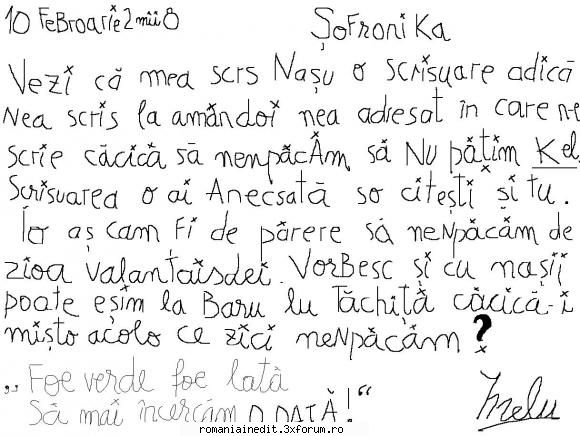 10 FeBroarie 2mii8
ȘoFroniKa
Vezi că mea scrs Nașu o scrisuare adică
Nea scris la amândoi nea adresat în care ne
scrie căcică să nenpăcĂm să Nu pățim Kel.
Scrisuarea o ai Anecsată so citești și tu.
Io aș cam fi de părere să neNpăcăm de
zioa valantaisdei. VorBesc și cu nașii
poate eșim la Baru lu Tăchiță căcică-i
mișto acolo ce zici neNpăcăm?
„Foe verde foe lată
Să mai încercăm O DATĂ!“
Irelu
romaniainedit.3xforum.ro